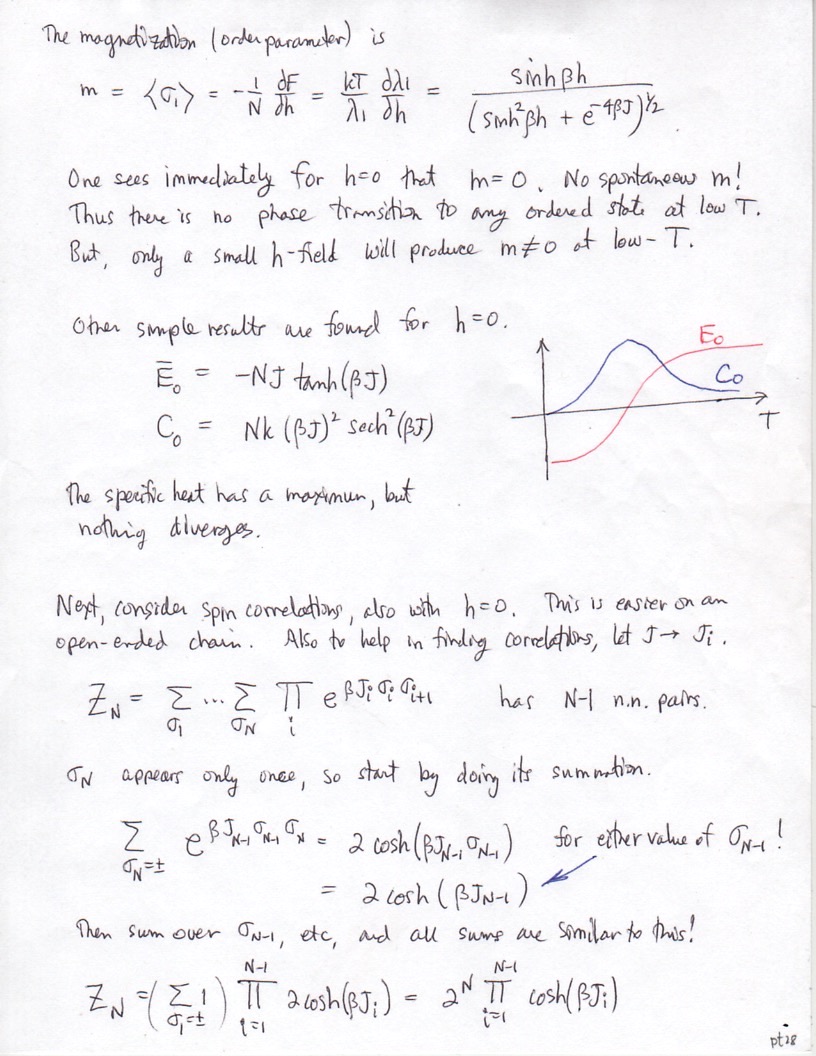 The magnetization (order parameter) is
m = ⟨σ₁⟩ = -1/N dF/dh = kT/λ₁ dλ₁/dh = sinh βh / (sinh²βh + e^{-4βJ})^{1/2}
One sees immediately for h=0 that m=0. No spontaneous m!
Thus there is no phase transition to any ordered state at low T.
But, only a small h-field will produce m≠0 at low-T.
Other simple results are found for h=0.
E̅₀ = -NJ tanh(βJ)
C₀ = Nk (βJ)² sech²(βJ)
E₀
C₀
T
The specific heat has a maximum, but
nothing diverges.
Next, consider spin correlations, also with h=0. This is easier on an
open-ended chain. Also to help in finding correlations, let J→ Jᵢ.
Z_N = Σ_{σ₁} ... Σ_{σ_N} Π_i e^{βJᵢσᵢσᵢ₊₁} has N-1 n.n. pairs.
σ_N appears only once, so start by doing its summation.
Σ_{σ_N=±} e^{βJ_{N-1}σ_{N-1}σ_N} = 2 cosh(βJ_{N-1}σ_{N-1}) for either value of σ_{N-1}!
= 2 cosh(βJ_{N-1})
Then sum over σ_{N-1}, etc, and all sums are similar to this!
Z_N = (Σ_{σ₁=±} 1) Π_{i=1}^{N-1} 2cosh(βJᵢ) = 2^N Π_{i=1}^{N-1} cosh(βJᵢ)
pt28